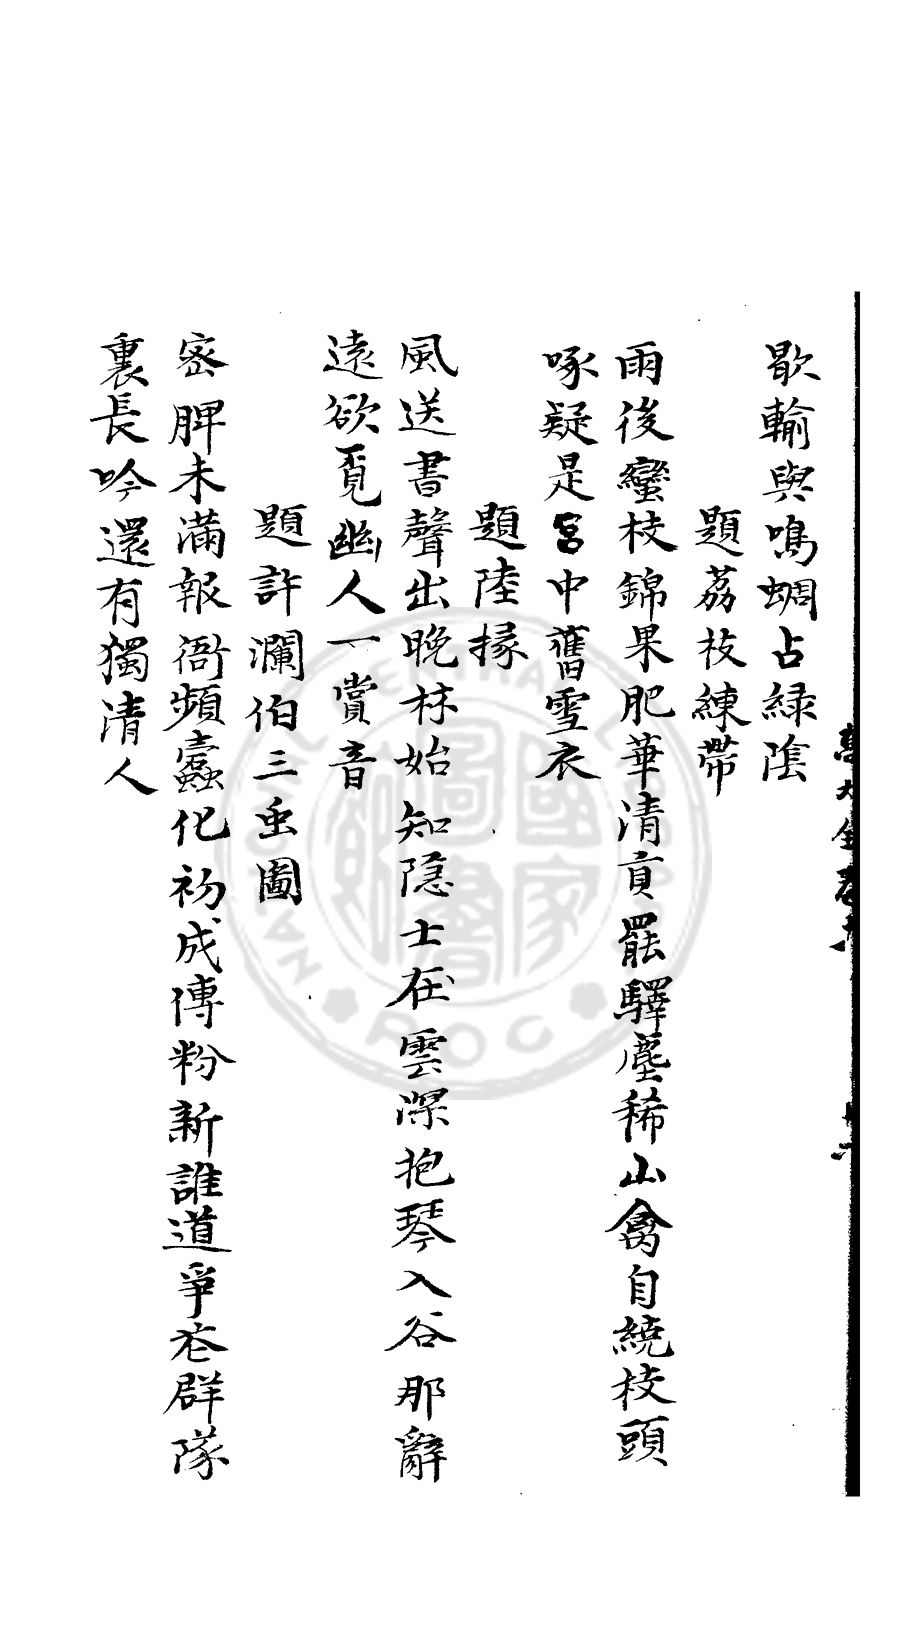 歇輸與鳴蜩占緑陰
題荔枝練帶
雨後蠻枝錦果肥華清貢罷驛塵稀山禽自繞枝頭
啄疑是宮中舊雪衣
題陸掾
風送書聲出晚林始知隐士在雲深抱琴入谷那辭
遠欲覓幽人一賞音
題許瀾伯三虫圖
密脾未滿報衙頻蠧化初成傅粉新誰道爭花群隊
裏長吟還有獨清人
NATIONAL CENTRAL LIBRARY
ROC
國家圖書館